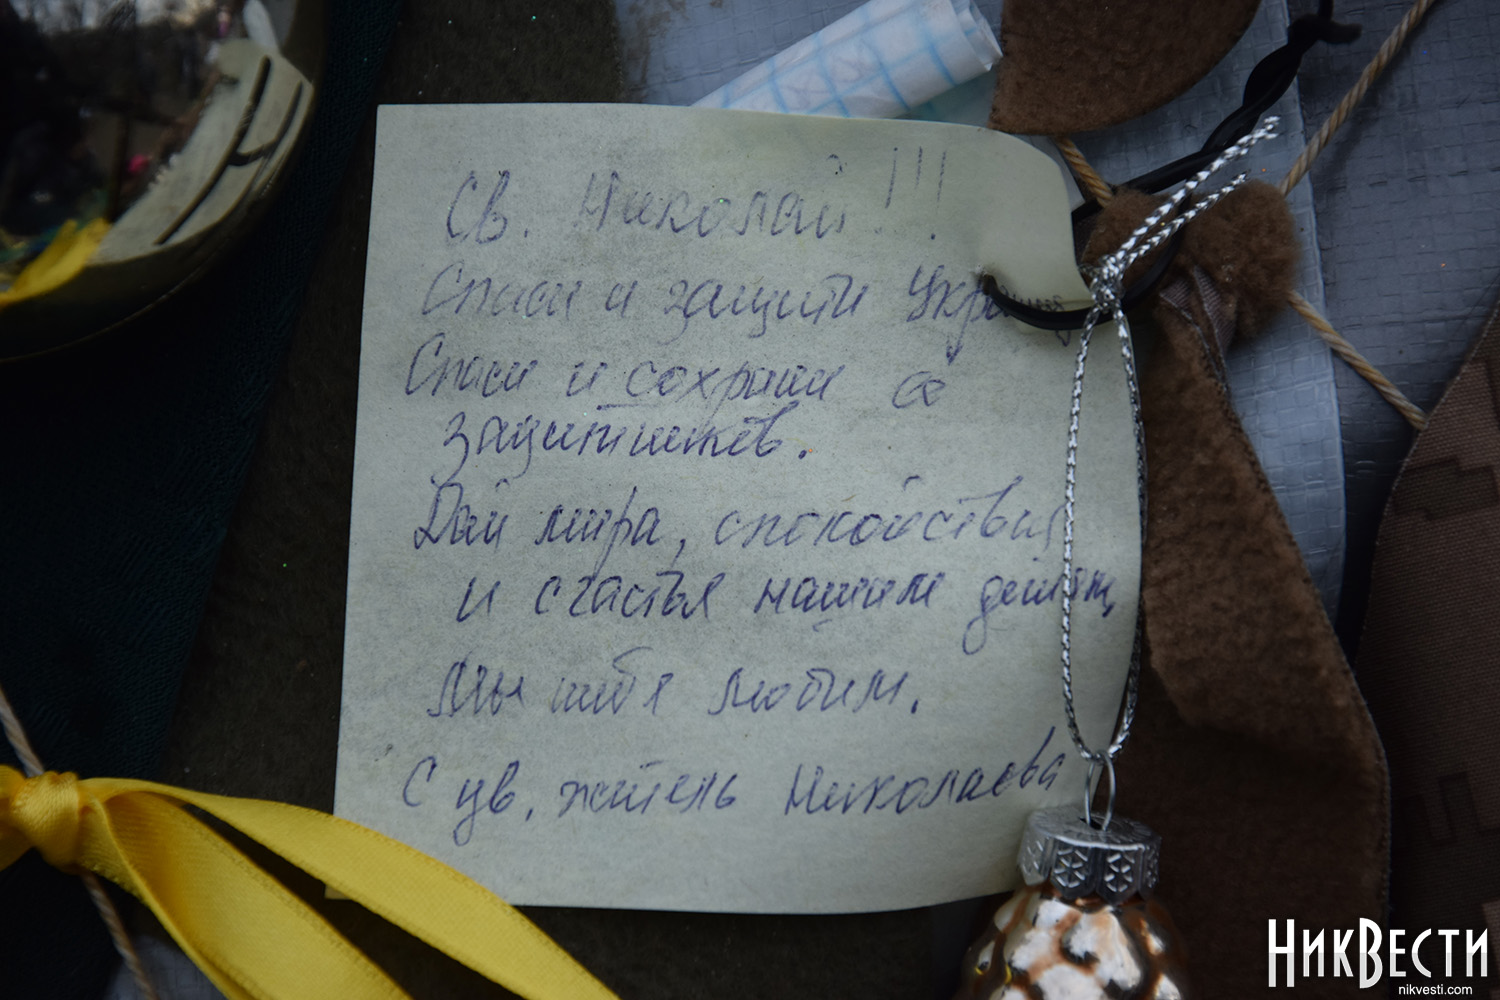 Св. Николай!!!
Спаси и защити Украину
Спаси и сохрани ее
защитников.
Дай мира, спокойствия
и счастья нашим детям,
Мы тебя любим.
С ув. житель Николаева
НикВести
nikvesti.com